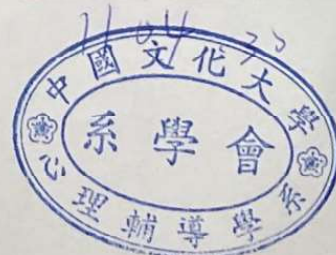 中國文化大學
系學會
心理輔導學系